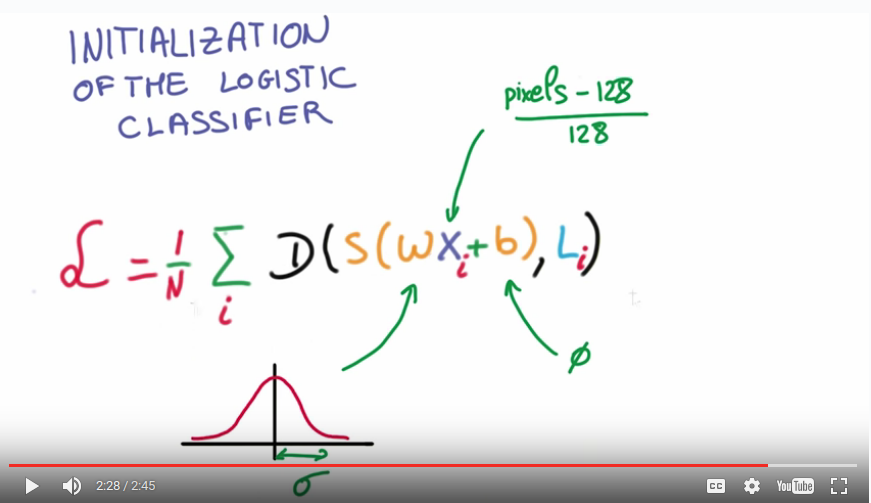 INITIALIZATION
OF THE LOGISTIC
CLASSIFIER
pixels - 128
128
ℒ = 1/N Σ_i D(S(WX_i + b), L_i)
∅
σ
2:28 / 2:45
CC
YouTube